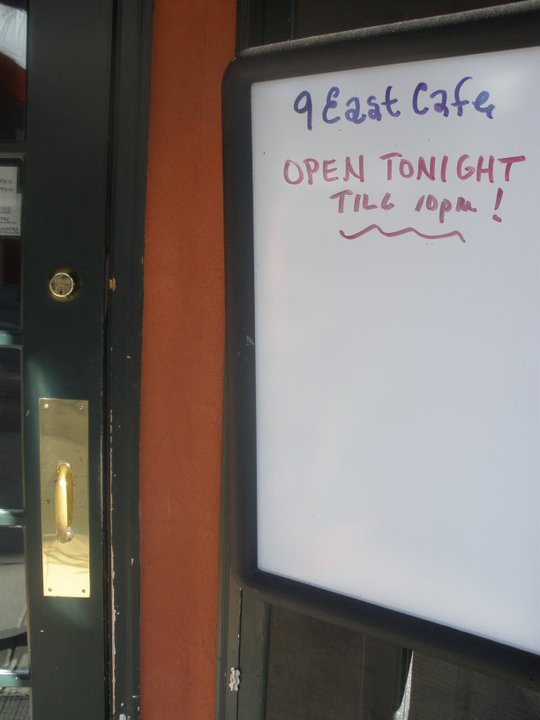 9 East Cafe
OPEN TONIGHT
TILL 10pm!